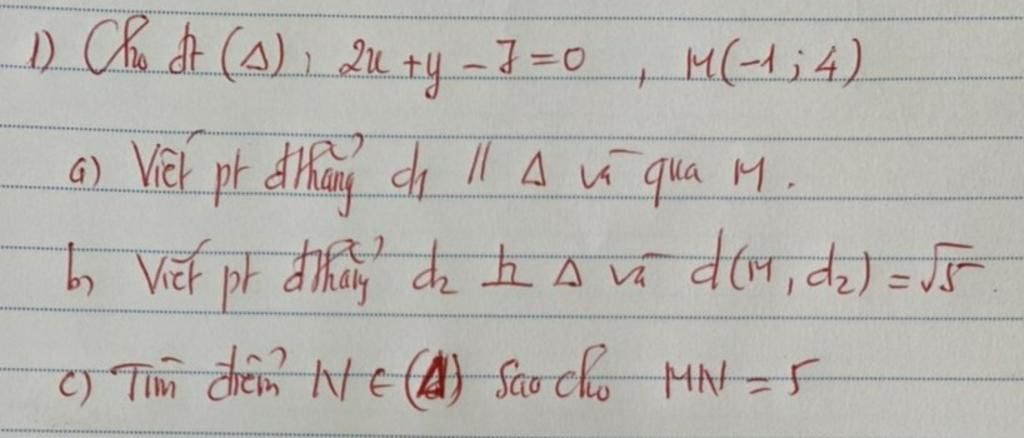 1) Cho đt (Δ): 2x + y - 7 = 0 , M(-1; 4)
a) Viết pt đthẳng d₁ // Δ và qua M.
b, Viết pt đthẳng d₂ ⊥ Δ và d(M, d₂) = √5.
c) Tìm điểm N ∈ (Δ) sao cho MN = 5